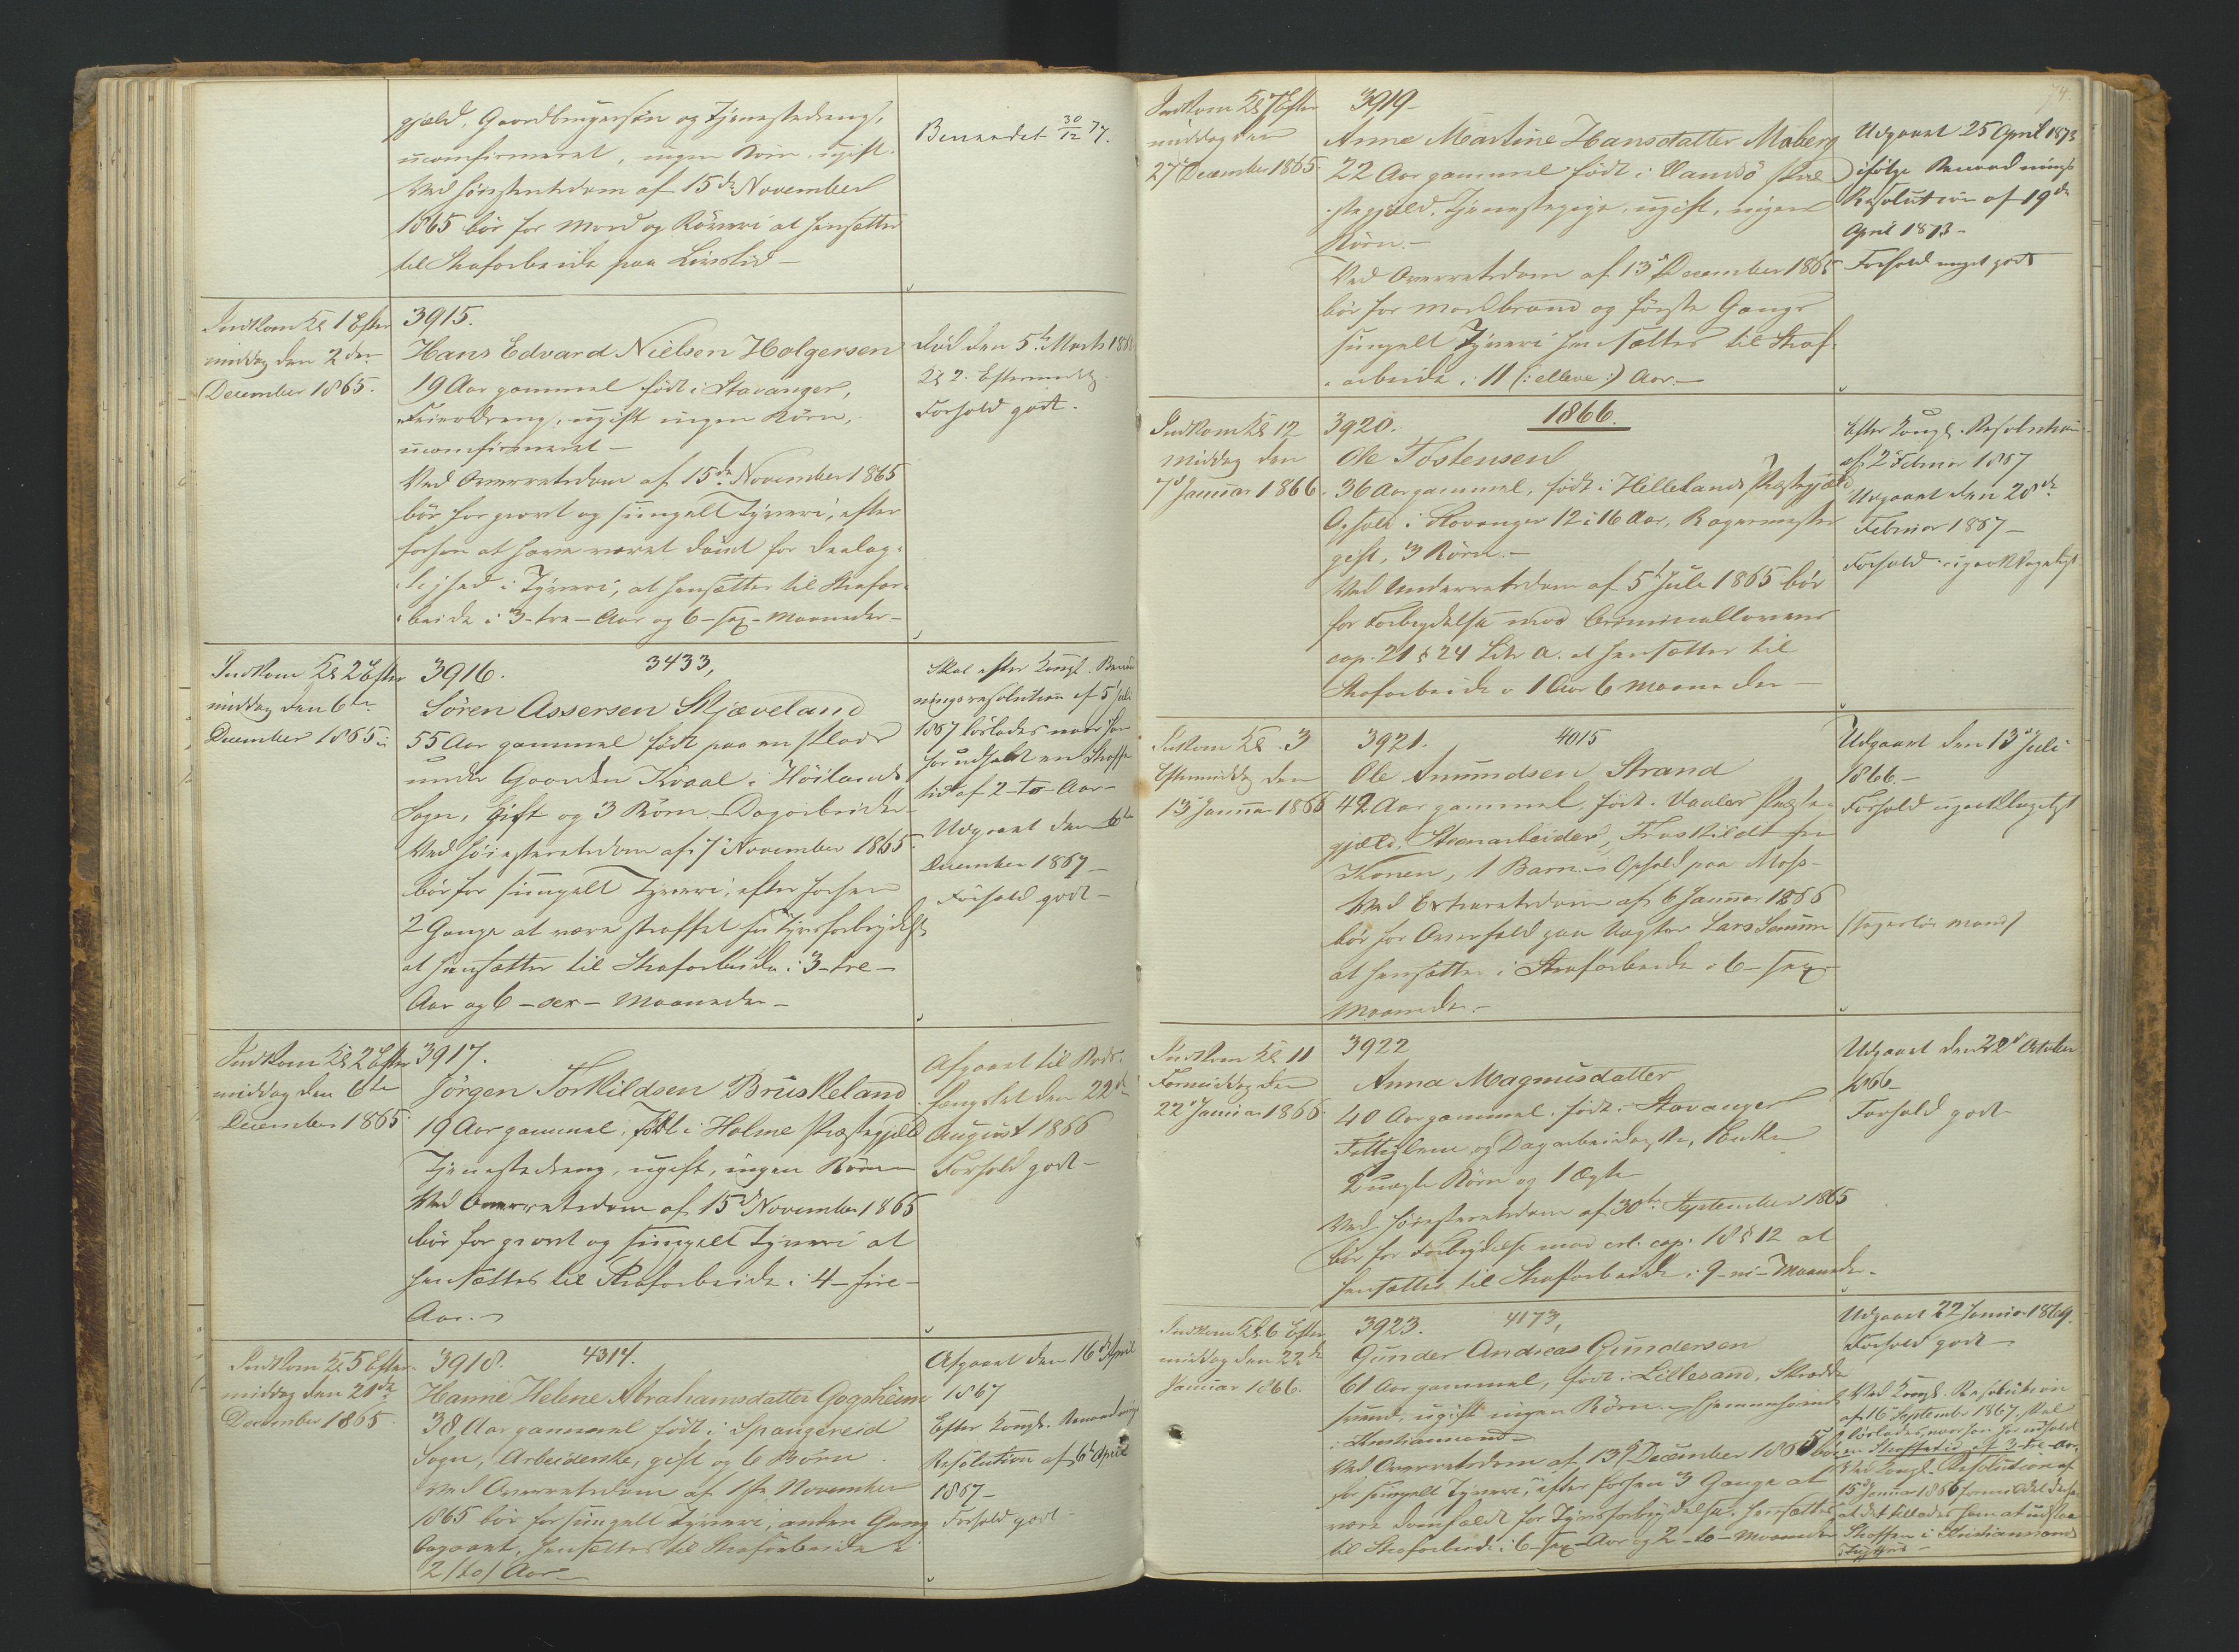 gjæld, Gaardbrugersøn og Tjenestedreng,
uconfirmeret, ingen Børn, ugift.
Ved Høiesteretsdom af 15de November
1865 bør for Mord og Röveri at hensættes
til Strafarbeide paa Livstid –
Benaadet 30/12 77.
Indkom Kl 1 Efter
middag den 2den
December 1865.
3915.
Hans Edvard Nielsen Holgersen
19 Aar gammel født i Stavanger,
ugift ingen Börn,
uconfirmeret –
Ved Overretsdom af 15de November 1865
bör for grovt og simpelt Tyveri, efter
forhen at have været dömt for Deelag-
tighed i Tyveri, at hensættes til Strafar-
beide i 3 – tre – Aar og 6 – sex – Maaneder –
Död den 5te Marts
Kl 2. Eftermidd.
Forhold godt.
Indkom Kl 2 Efter
middag den 6te
December 1865
3916. 3433,
Sören Assersen Skjæveland
55 Aar gammel født paa en Plads
under Gaarden Kvaal i Höilands
Sogn, Gift og 3 Börn. Dagarbeider
Ved Höiesteretsdom af 7 November 1865
bör for simpelt Tyveri, efter forhen
2 Gange at være straffet for Tyvsforbrydelse
at hensættes til Strafarbeide i 3 – tre –
Aar og 6 – sex – Maaneder –
Skal efter Kongl. Benaad
ningsresolution af 5 Juli
1867 löslades naar han
har udholdt en Straffe
tid af 2 – to – Aar –
Udgaaet den 6te
December 1867 –
Forhold godt –
Indkom Kl 2 Efter
middag den 6te
December 1865
3917.
Jörgen Torkildsen Bruskeland
19 Aar gammel, Födt i Holme Præstegjæld
Tjenestedreng, ugift, ingen Börn
Ved Overretsdom af 15de November 1865
bör for grovt og simpelt Tyveri at
hensættes til Strafarbeide i 4 – fire –
Aar. –
Afgaaet til Bods-
fængslet den 22de
August 1866
Forhold godt –
Indkom Kl 5 Efter-
middag den 21de
December 1865.
3918. 4314.
Hanne Helene Abrahamsdatter Gogsheim
38 Aar gammel født i Spangereid
Sogn, Arbeiderske, gift og 6 Börn.
Ved Overretsdom af 1ste November
1865 bör for simpelt Tyveri, anden Gang
begaaet, hensættes til Strafarbeide i
2 /to/ Aar –
Afgaaet den 16de April
1867
Efter Kongl. Benaadnings
Resolution af 6te April
1867 –
Forhold godt –
74.
Indkom Kl 7 Efter
middag den
27de December 1865.
3919 –
Anne Martine Hansdatter Moberg
22 Aar gammel født i Vansö Præ
stegjæld, Tjenestepige, ugift, ingen
Börn. –
Ved Overretsdom af 13de December 1865
bör for Mordbrand og förste Gangs
simpelt Tyveri hensættes til Straf-
arbeide i 11 (: elleve :) Aar. –
Udgaaet 25 April 1873
ifölge Benaadnings
Resolution af 19de
April 1873 –
Forhold meget godt
1866.
Indkom Kl 12
Middag den
7de Januar 1866.
3920.
Ole Tostensen
36 Aar gammel, født i Hellelands Præstegjæld
Ophold i Stavanger 12 à 16 Aar, Bagermester
gift, 3 Börn. –
Ved Underretsdom af 5te Juli 1865 bör
for Forbrydelse mod Criminallovens
cap. 21 § 24 Litr a. at hensættes til
Strafarbeide i 1 Aar 6 Maaneder –
Efter Kongl. Resolution
af 2 Februar 1867
Udgaaet den 28de
Februar 1867 –
Forhold upaaklageligt
Indkom Kl. 3
Eftermiddag den
13 Januar 1866
3921. 4015
Ole Amundsen Strand
42 Aar gammel, født i Vaaler Præste-
gjæld, Steenarbeider, Fraskildt fra
Konen, 1 Barn. Ophold paa Moss –
Ved Extraretsdom af 6 Januar 1866
bör for Overfald paa Vagten Lars
at hensættes i Strafarbeide i 6 – sex –
Maaneder. –
Udgaaet den 13de Juli
1866 –
Forhold upaaklageligt
Indkom Kl 11
Formiddag den
22de Januar 1866.
3922
Anna Magnusdatter
40 Aar gammel, født i Stavanger
Fattiglem og Dagarbeiderske, Enke
2 uægte Börn og 1 ægte
Ved Höiesteretsdom af 30te September 1865
bör for Forbrydelse mod crl. cap. 18 § 12 at
hensættes til Strafarbeide i 9 – ni – Maaneder –
Udgaaet den 22de October
1866 –
Forhold godt –
Indkom Kl. 6 Efter
middag den 22de
Januar 1866.
3923. 4173,
Gunder Andreas Gundersen
61 Aar gammel, født i Lillesand, Skrædder
svend, ugift ingen Börn. – Hjemmehörende
i Kristianssand –
Ved Overretsdom af 13de December 1865 bör
for simpelt Tyveri, efter forhen 3 Gange at
være domfældt for Tyvsforbrydelse, hensættes
til Strafarbeide i 6 – sex – Aar og 2 – to – Maaneder
Udgaaet 22 Januar 1869.
Forhold godt –
Ved Kongl. Resolution
af 16 September 1867 skal
löslades, naar han har udholdt
en Straffetid af 3 – tre – Aar.
Ved Kongl. Resolution af
15 Januar 1866
at det tillades ham at udstaa
Straffen i Kristianssands